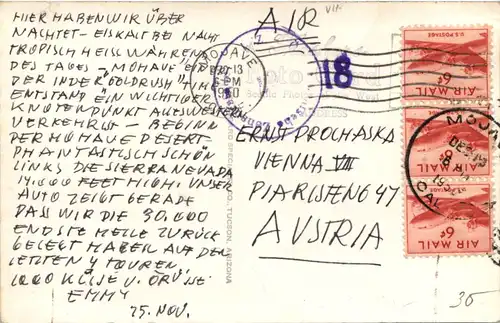 HIER HABEN WIR ÜBER
NACHTET - EISKALT BEI NACHT
TROPISCH HEISS WÄHREND
DES TAGES - MOHAVE
DER IN DER "GOLDRUSH"
ENTSTAND EIN WICHTIGER
KNOTENPUNKT
VERKEHRS - BEGINN
DER MOHAVE DESERT
PHANTASTISCH SCHÖN
LINKS DIE SIERRA NEVADA
14.000 FEET HIGH. UNSER
AUTO ZEIGT GERADE
DASS WIR DIE 30.000
ENDSTE MEILE ZURÜCK
GELEGT HABEN AUF DEN
LETZTEN 4 TOUREN
1000 KÜSSE U. GRÜSSE
EMMY
25. NOV.
AIR
MOJAVE
PM
18
ERNST PROCHASKA
VIENNA VIII
PIARISTENG 47
AUSTRIA
TUCSON, ARIZONA
U.S. POSTAGE
6¢
AIR MAIL
6¢
AIR MAIL
6¢
AIR MAIL
MOJAVE
CAL